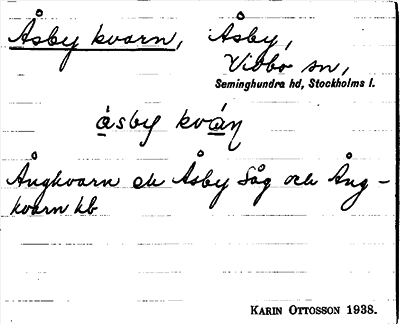 Åsby kvarn, Åsby,
Vidbo sn,
Seminghundra hd, Stockholms l.
åsby kvån
Ångkvarn ek Åsby Såg och Ång-
kvarn kb
KARIN OTTOSSON 1938.